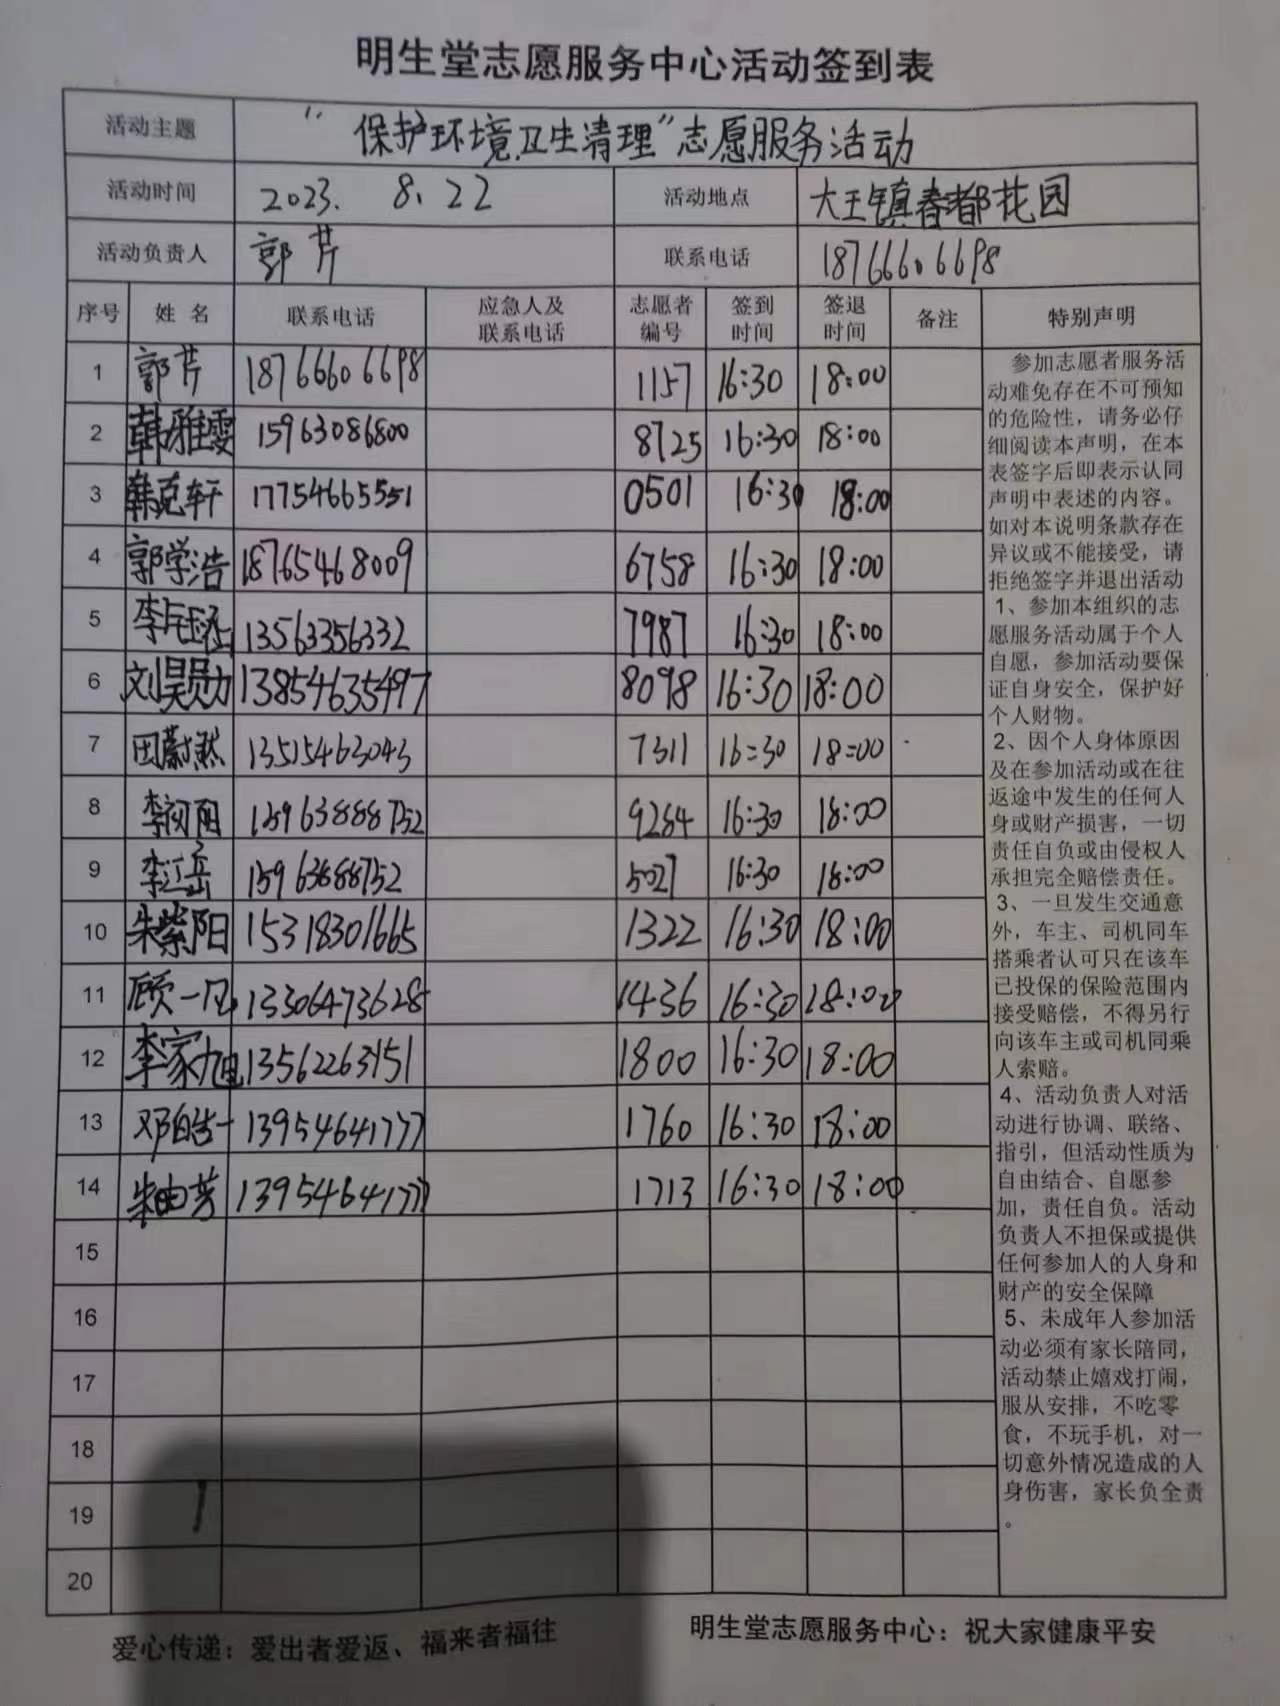 明生堂志愿服务中心活动签到表
活动主题 “保护环境卫生清理”志愿服务活动
活动时间 2023. 8.22 活动地点 大王镇春都花园
活动负责人 郭芹 联系电话 18766606698
序号 姓 名 联系电话 应急人及联系电话 志愿者编号 签到时间 签退时间 备注 特别声明
1 郭芹 18766606698 1157 16:30 18:00
2 韩雅雯 15963086800 8725 16:30 18:00
3 韩克轩 17754665551 0501 16:30 18:00
4 郭学浩 18765468009 6758 16:30 18:00
5 13563356332 7987 16:30 18:00
6 刘昊 13854635497 8098 16:30 18:00
7 田蔚然 13515463043 7311 16:30 18:00
8 李初阳 15963888752 9284 16:30 18:00
9 李江岳 15963888752 5027 16:30 18:00
10 朱紫阳 15318301665 1322 16:30 18:00
11 顾一凡 13306473628 1436 16:30 18:00
12 李家旭 13562263151 1800 16:30 18:00
13 邓皓一 13954641777 1760 16:30 18:00
14 朱曲芳 13954641777 1713 16:30 18:00
15
16
17
18
19
20
参加志愿者服务活
动难免存在不可预知
的危险性，请务必仔
细阅读本声明，在本
表签字后即表示认同
声明中表述的内容。
如对本说明条款存在
异议或不能接受，请
拒绝签字并退出活动
1、参加本组织的志
愿服务活动属于个人
自愿，参加活动要保
证自身安全，保护好
个人财物。
2、因个人身体原因
及在参加活动或在往
返途中发生的任何人
身或财产损害，一切
责任自负或由侵权人
承担完全赔偿责任。
3、一旦发生交通意
外，车主、司机同车
搭乘者认可只在该车
已投保的保险范围内
接受赔偿，不得另行
向该车主或司机同乘
人索赔。
4、活动负责人对活
动进行协调、联络、
指引，但活动性质为
自由结合、自愿参
加，责任自负。活动
负责人不担保或提供
任何参加人的人身和
财产的安全保障
5、未成年人参加活
动必须有家长陪同，
活动禁止嬉戏打闹，
服从安排，不吃零
食，不玩手机，对一
切意外情况造成的人
身伤害，家长负全责
。
爱心传递：爱出者爱返、福来者福往 明生堂志愿服务中心：祝大家健康平安